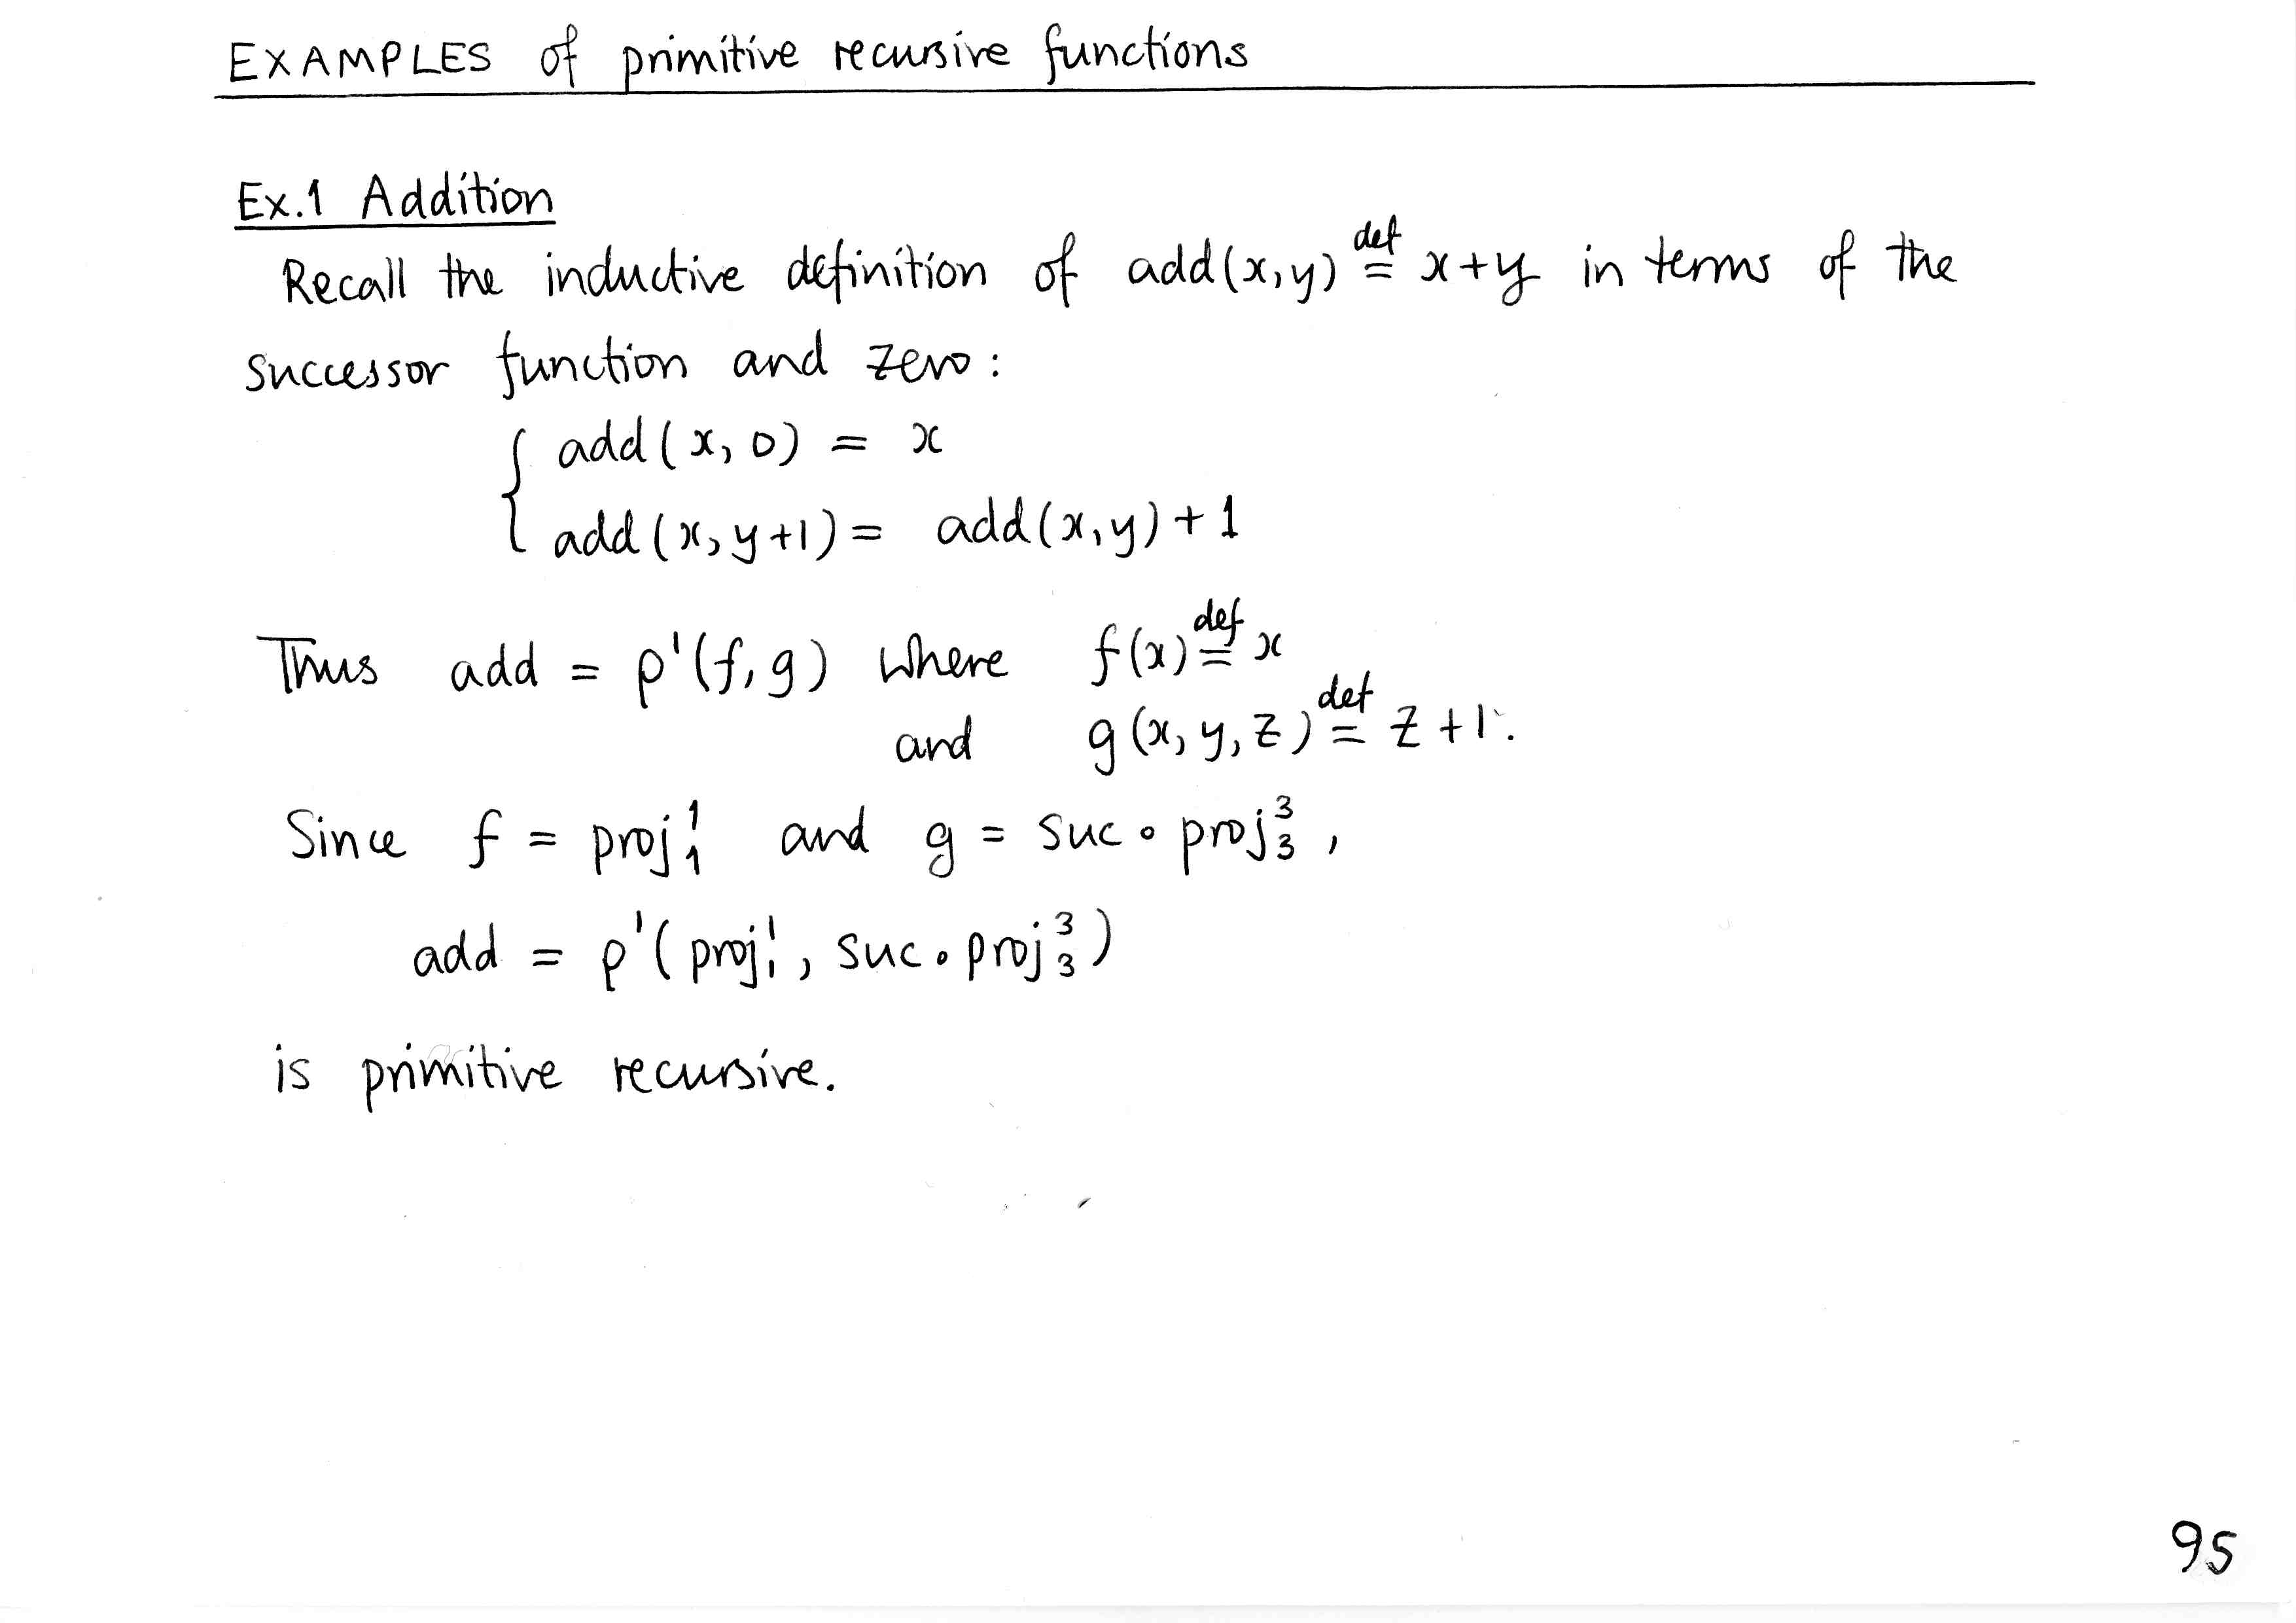 EXAMPLES of primitive recursive functions
Ex.1 Addition
Recall the inductive definition of add(x,y) def= x+y in terms of the
successor function and zero:
{ add(x, 0) = x
add(x, y+1) = add(x,y) + 1
Thus add = ρ¹(f, g) where f(x) def= x
and g(x, y, z) def= z + 1.
Since f = proj¹₁ and g = suc ∘ proj³₃ ,
add = ρ¹( proj¹₁ , suc ∘ proj³₃ )
is primitive recursive.
95